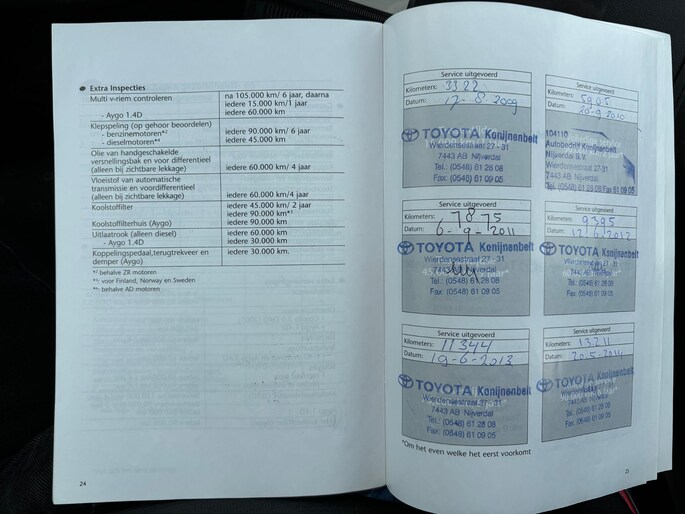 Extra Inspecties
Multi v-riem controleren
na 105.000 km/ 6 jaar, daarna
iedere 15.000 km/1 jaar
- Aygo 1.4D
iedere 60.000 km
Klepspeling (op gehoor beoordelen)
- benzinemotoren*²
iedere 90.000 km/ 6 jaar
- dieselmotoren*⁴
iedere 45.000 km
Olie van handgeschakelde
versnellingsbak en voor differentieel
(alleen bij zichtbare lekkage)
iedere 60.000 km/ 4 jaar
Vloeistof van automatische
transmissie en voordifferentieel
(alleen bij zichtbare lekkage)
iedere 60.000 km/4 jaar
Koolstoffilter
iedere 45.000 km/ 2 jaar
iedere 90.000 km*³
Koolstoffilterhuis (Aygo)
iedere 90.000 km
Uitlaatrook (alleen diesel)
iedere 60.000 km
- Aygo 1.4D
iedere 30.000 km
Koppelingspedaal,terugtrekveer en
demper (Aygo)
iedere 30.000 km.
*² behalve ZR motoren
*³: voor Finland, Norway en Sweden
*⁴: behalve AD motoren
24
Service uitgevoerd
Kilometers: 3322
Datum: 17-8-2009
TOYOTA Konijnenbelt
Wierdensestraat 27 - 31
7443 AB Nijverdal
Tel.: (0548) 61 28 08
Fax: (0548) 61 09 05
Service uitgevoerd
Kilometers: 5905
Datum: 20-9-2010
104110
Autobedrijf Konijnenbelt
Nijverdal B.V.
Wierdensestraat 27-31
7443 AB Nijverdal
Tel. (0548) 61 28 08 Fax 61 09 05
Service uitgevoerd
Kilometers: 7875
Datum: 6-9-2011
TOYOTA Konijnenbelt
Wierdensestraat 27 - 31
7443 AB Nijverdal
Tel.: (0548) 61 28 08
Fax: (0548) 61 09 05
Service uitgevoerd
Kilometers: 9395
Datum: 12-6-2012
TOYOTA Konijnenbelt
Wierdensestraat 27 - 31
7443 AB Nijverdal
Tel.: (0548) 61 28 08
Fax: (0548) 61 09 05
Service uitgevoerd
Kilometers: 11344
Datum: 19-6-2013
TOYOTA Konijnenbelt
Wierdensestraat 27 - 31
7443 AB Nijverdal
Tel.: (0548) 61 28 08
Fax: (0548) 61 09 05
Service uitgevoerd
Kilometers: 13211
Datum: 20-5-2014
TOYOTA Konijnenbelt
Wierdensestraat 27 - 31
7443 AB Nijverdal
Tel.: (0548) 61 28 08
Fax: (0548) 61 09 05
*Om het even welke het eerst voorkomt